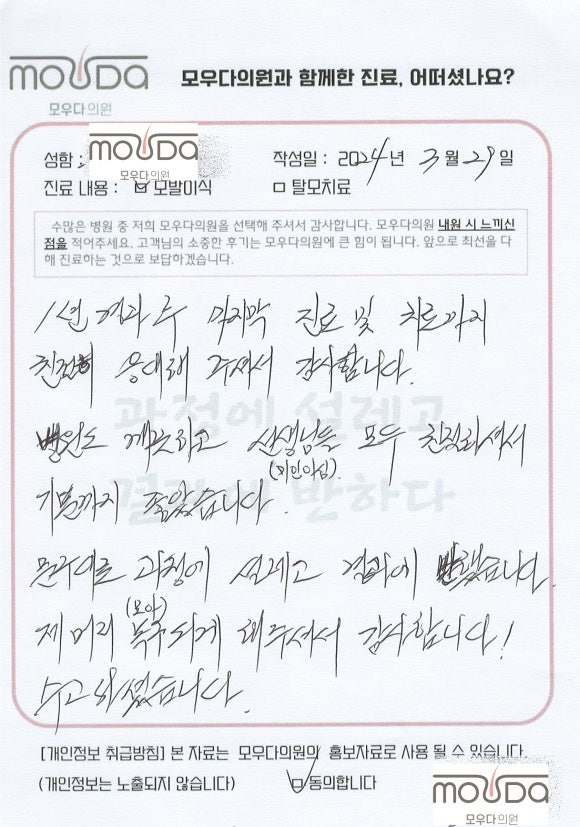 MOUDA
모우다의원
모우다의원과 함께한 진료, 어떠셨나요?
성함 :
MOUDA
모우다의원
작성일 : 2024년 3월 29일
진료 내용 : ☑ 모발이식 □ 탈모치료
수많은 병원 중 저희 모우다의원을 선택해 주셔서 감사합니다. 모우다의원 내원 시 느끼신
점을 적어주세요. 고객님의 소중한 후기는 모우다의원에 큰 힘이 됩니다. 앞으로 최선을 다
해 진료하는 것으로 보답하겠습니다.
1년 경과 후 마지막 진료 및 치료까지
친절히 응대해 주셔서 감사합니다.
병원도 깨끗하고 선생님들 모두 친절하셔서
(미인이심).
기분까지 좋았습니다.
과정에 설레고
결과에 반하다
문구대로 과정에 설레고 결과에 반했습니다.
(모아)
제 머리 복구되게 해주셔서 감사합니다!
수고하셨습니다.
[개인정보 취급방침] 본 자료는 모우다의원의 홍보자료로 사용 될 수 있습니다.
(개인정보는 노출되지 않습니다) ☑ 동의합니다
MOUDA
모우다의원